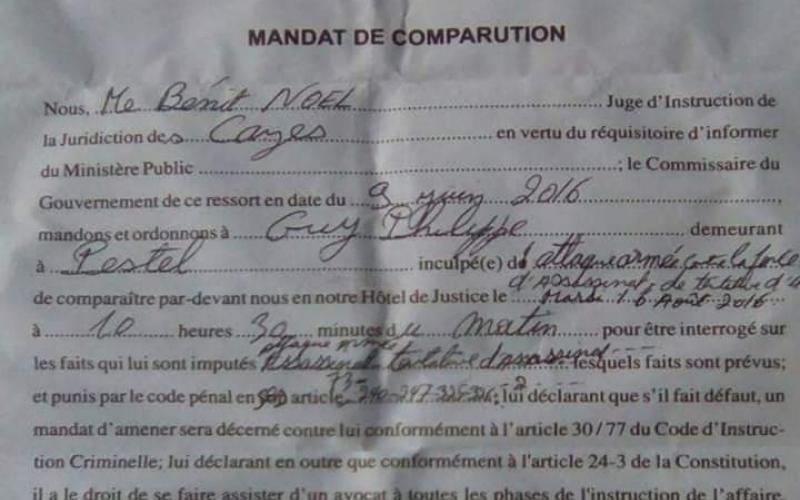 MANDAT DE COMPARUTION
Nous, Me Bénit NOEL Juge d'Instruction de
la Juridiction des Cayes en vertu du réquisitoire d'informer
du Ministère Public ; le Commissaire du
Gouvernement de ce ressort en date du 9 juin 2016,
mandons et ordonnons à Guy Philippe demeurant
à Pestel inculpé(e) d' attaque armée contre la force
d'Assassinat, de tentative d'a
de comparaître par-devant nous en notre Hôtel de Justice le Mardi 16 Août 2016
à 10 heures 30 minutes du Matin pour être interrogé sur
attaque armée
les faits qui lui sont imputés Assassinat tentative d'assassinat lesquels faits sont prévus;
et punis par le code pénal en ses article lui déclarant que s'il fait défaut, un
mandat d'amener sera décerné contre lui conformément à l'article 30/77 du Code d'Instruc-
tion Criminelle; lui déclarant en outre que conformément à l'article 24-3 de la Constitution,
il a le droit de se faire assister d'un avocat à toutes les phases de l'instruction de l'affaire